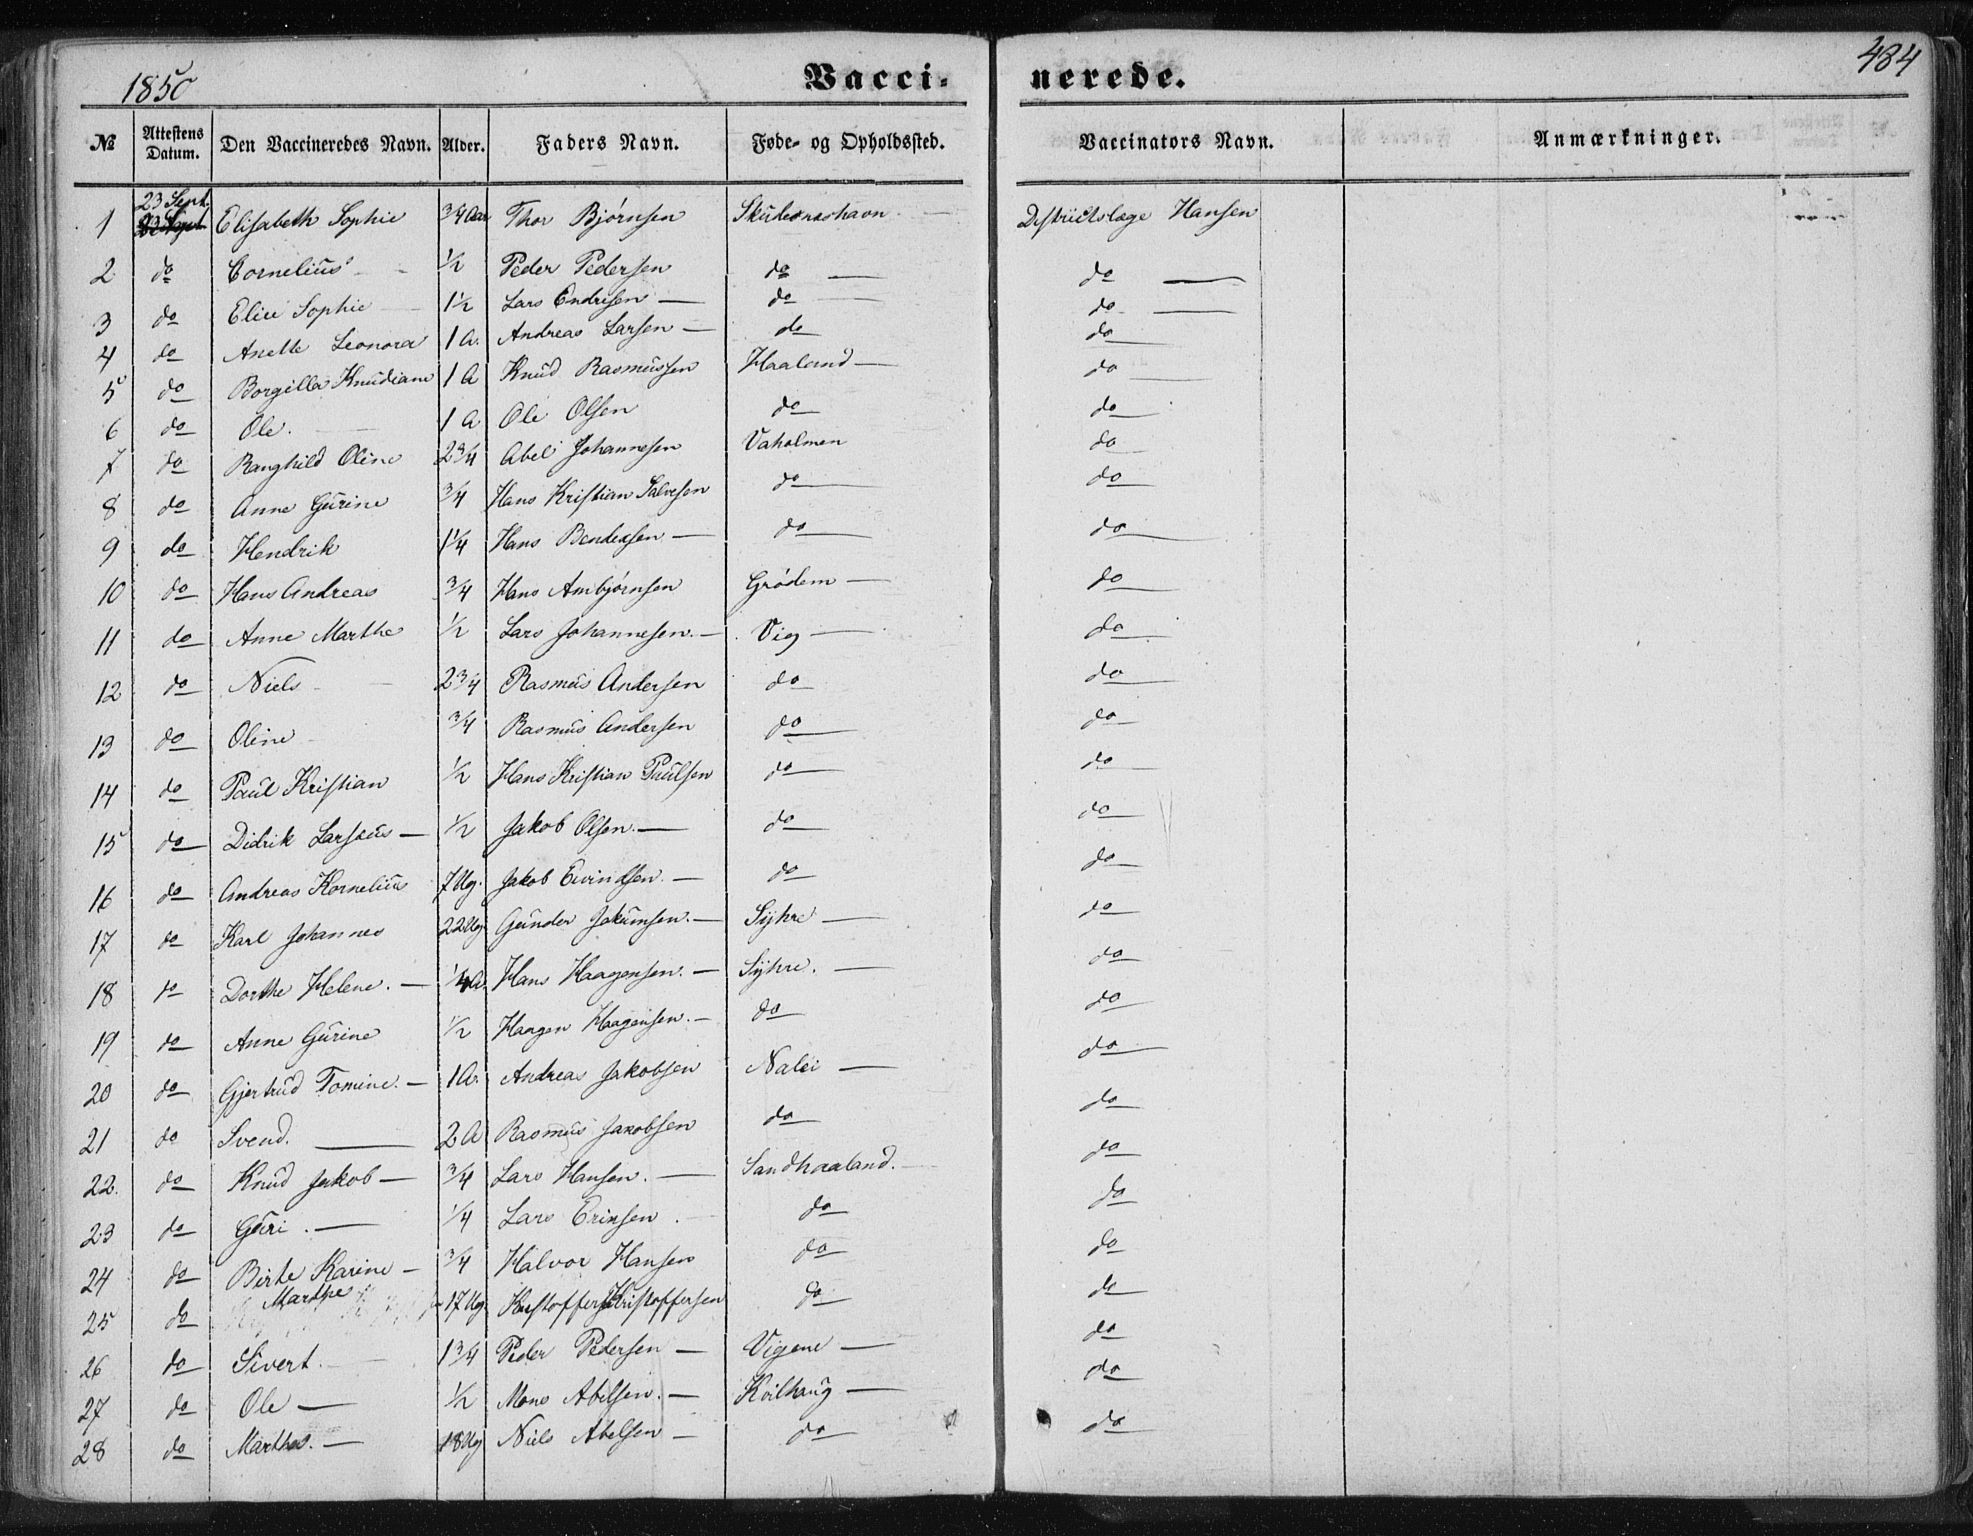 1850 Vacci- nerede. 484
№ Attestens Datum. Den Vaccineredes Navn. Alder. Faders Navn. Føde- og Opholdssted. Vaccinators Navn. Anmærkninger.
23 Sept.
1 Elisabeth Sophie 3/4 Aar Thor Bjørnsen Districtslæge Hansen
2 do Cornelius 1/2 Peder Pedersen do do
3 do Elise Sophie 1 1/2 Lars Endresen do do
4 do Anette Leonora 1 A. Andreas Larsen do do
5 do Borgilla Knudiane 1 A Knud Rasmussen Haaland do
6 do Ole. 1 A Ole Olsen do do
7 do Ranghild Oline 2 3/4 Abel Johannesen Vaholmen do
8 do Anne Gurine 3/4 Hans Kristian Salvesen do do
9 do Hendrik 1 1/4 Hans Bendexsen do do
10 do Hans Andreas 3/4 Hans Ambjørnsen Grødem do
11 do Anne Marthe 1/2 Lars Johannesen. Vig do
12 do Niels 2 3/4 Rasmus Andersen do do
13 do Oline 3/4 Rasmus Andersen do do
14 do Paul Kristian 1/2 Hans Kristian Paulsen do do
15 do Didrik 1/2 Jakob Olsen. do do
16 do Andreas Kornelius 7 Ug. Jakob Eivindsen. do do
17 do Karl Johannes 22 Ug Gunder Jakumsen. Syhre do
18 do Dorthe Helene. 1/4 A. Hans Haagensen. Syhre. do
19 do Anne Gurine 1/2 Haagen Haagensen. do do
20 do Gjertrud Tomine. 1 A. Andreas Jakobsen Nalei do
21 do Svend. 2 A Rasmus Jakobsen do do
22. do Knud Jakob 3/4 Lars Hansen. Sandhaaland. do
23 do Guri. 1/4 Lars Erinsen. do do
24 do Birte Karine 3/4 Halvor Hansen do do
25 do Marthe 17 Ug Kristoffer Kristoffersen do do
26 do Sivert. 1 3/4 Peder Pedersen Vigene do
27 do Ole 1/2 Mons Abelsen. Kvilhaug do
28 do Marthe. 18 Ug Niels Abelsen do do